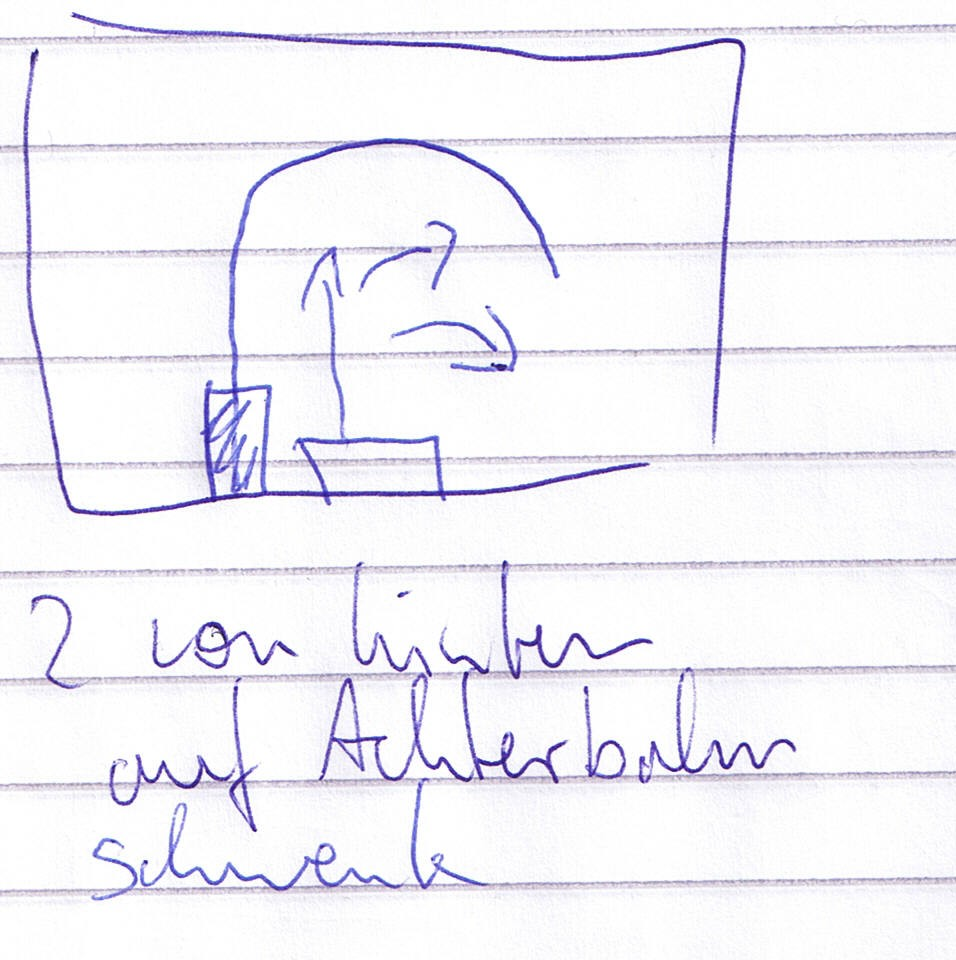 2 von hinten
auf Achterbahn
schwenk